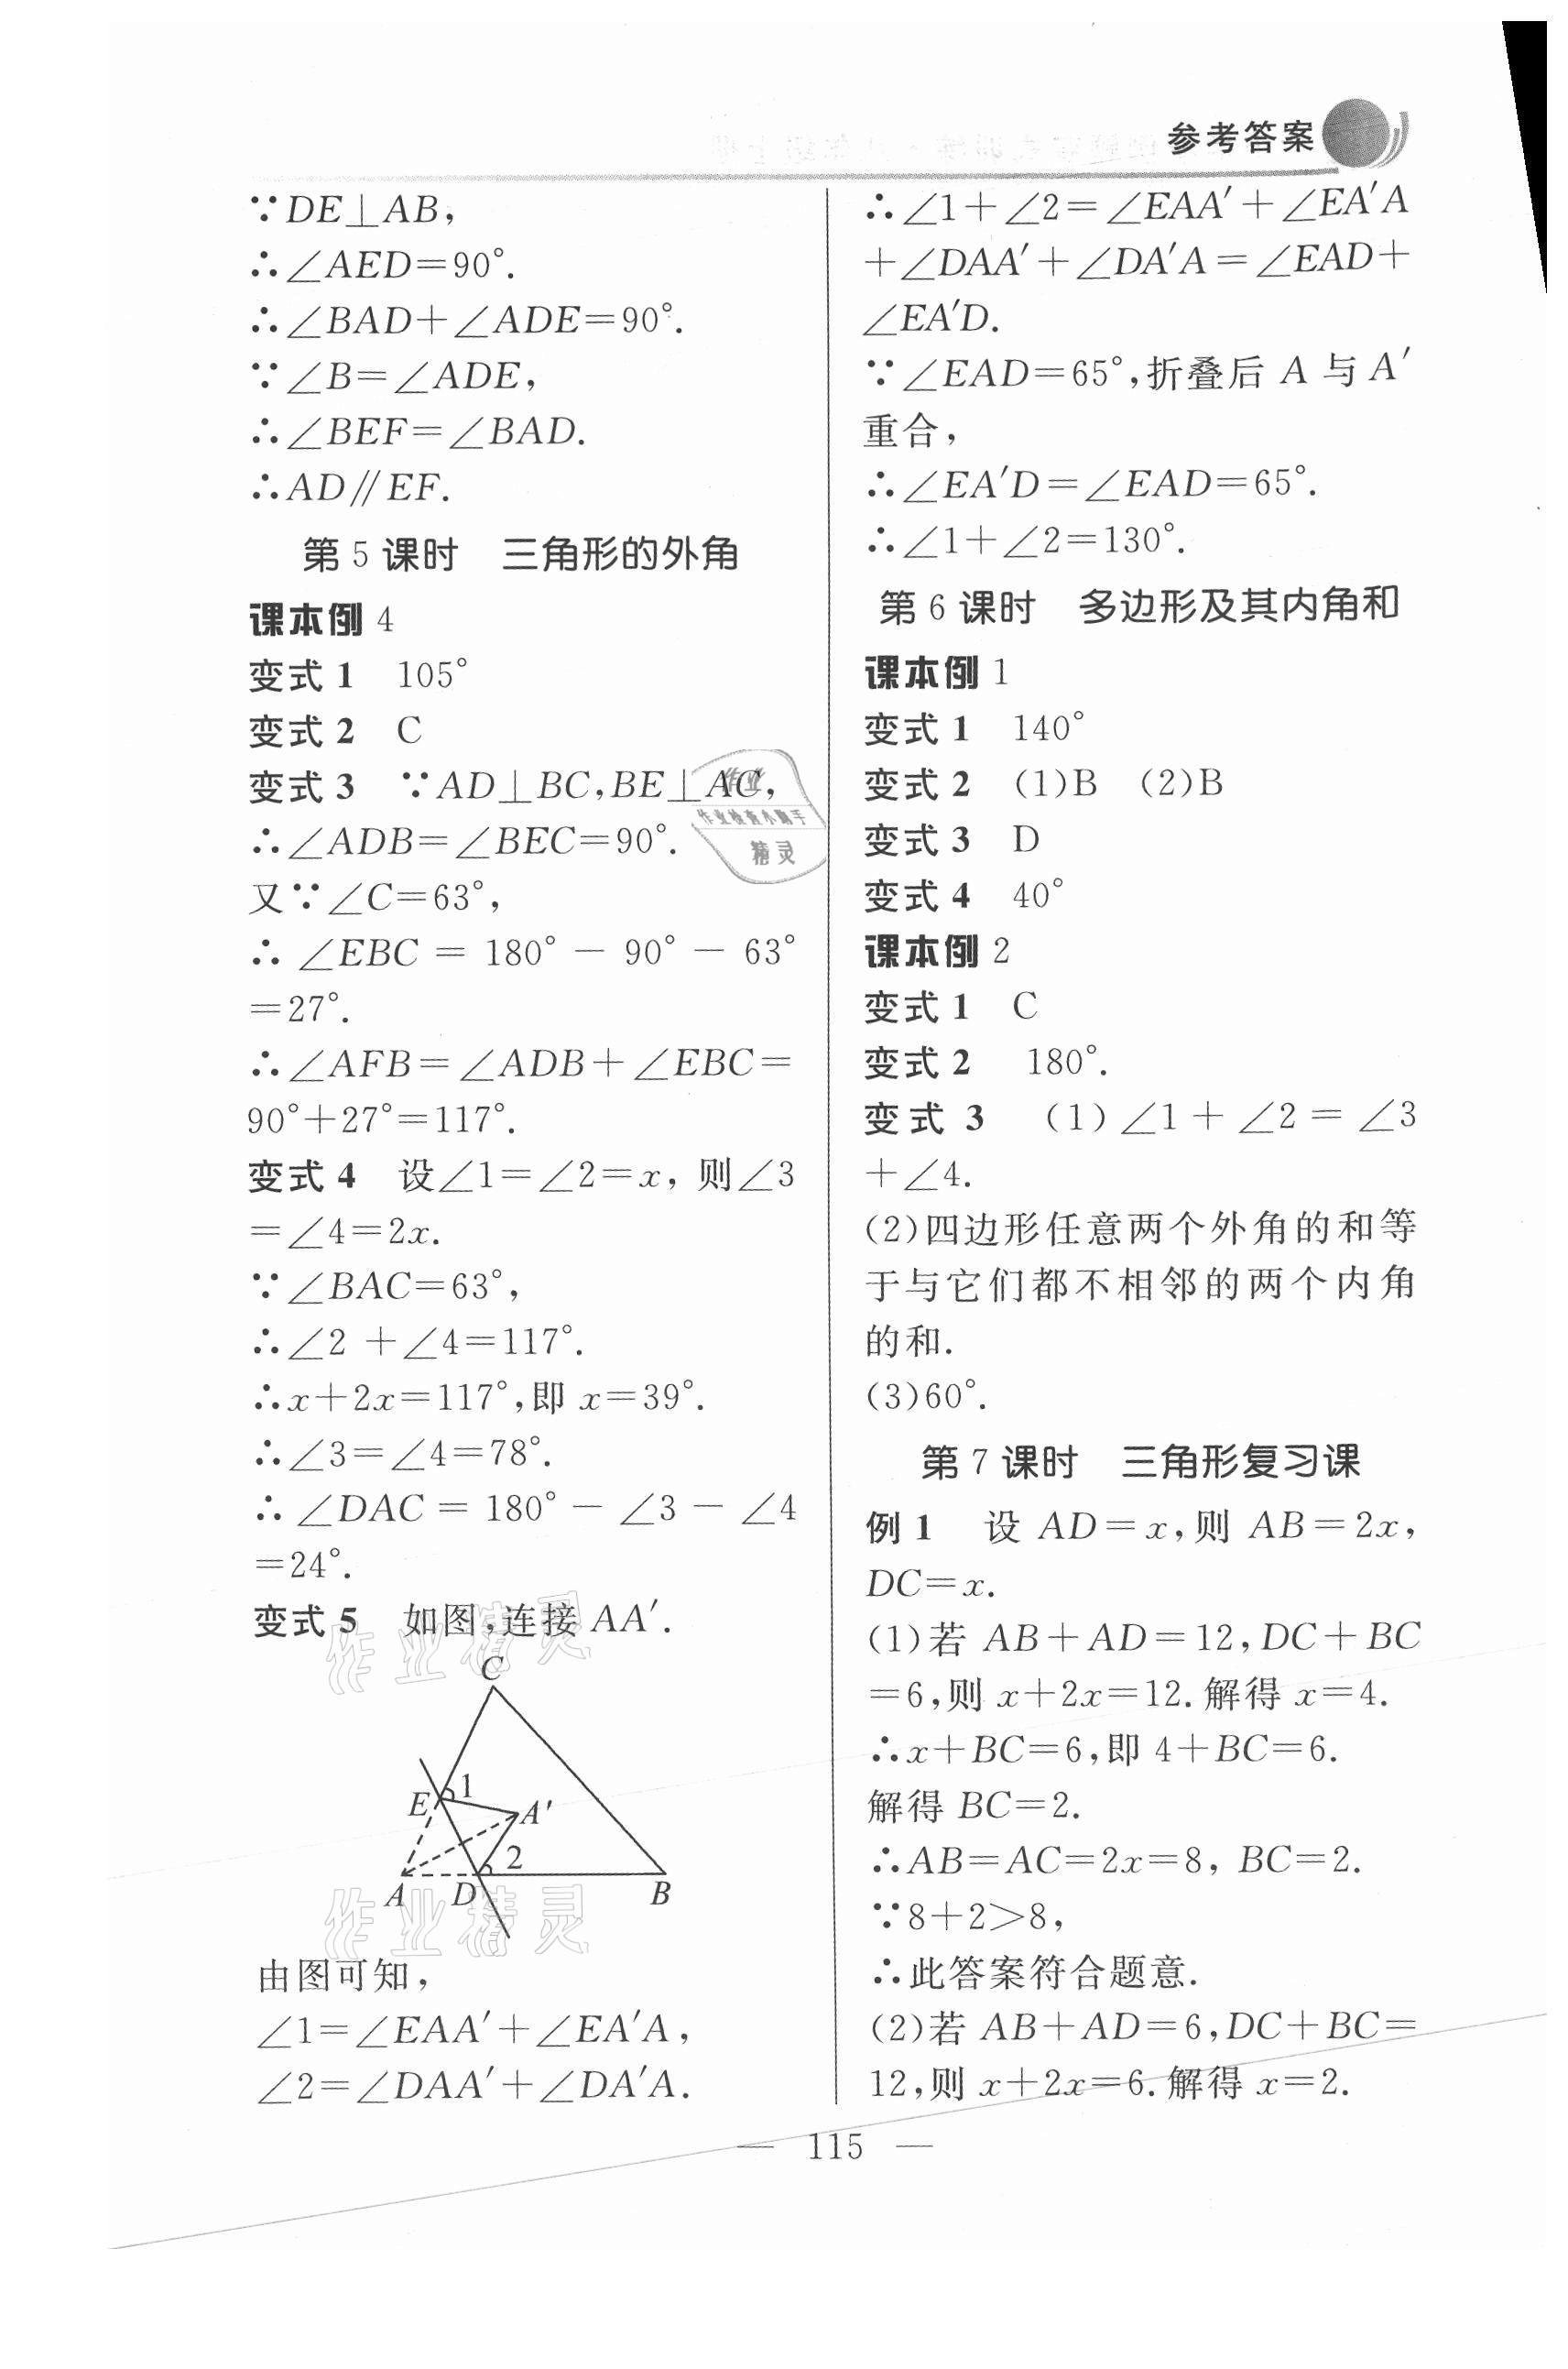 参考答案
∵DE⊥AB,
∴∠AED=90°.
∴∠BAD+∠ADE=90°.
∵∠B=∠ADE,
∴∠BEF=∠BAD.
∴AD∥EF.
第5课时 三角形的外角
课本例 4
变式 1 105°
变式 2 C
变式 3 ∵AD⊥BC,BE⊥AC,
∴∠ADB=∠BEC=90°.
又∵∠C=63°,
∴∠EBC = 180° - 90° - 63°
=27°.
∴∠AFB=∠ADB+∠EBC=
90°+27°=117°.
变式 4 设∠1=∠2=x, 则∠3
=∠4=2x.
∵∠BAC=63°,
∴∠2 +∠4=117°.
∴x+2x=117°,即 x=39°.
∴∠3=∠4=78°.
∴∠DAC = 180° - ∠3 - ∠4
=24°.
变式 5 如图,连接 AA′.
C
E 1
A′
2
A D B
由图可知,
∠1=∠EAA′+∠EA′A,
∠2=∠DAA′+∠DA′A.
∴∠1+∠2=∠EAA′+∠EA′A
+∠DAA′+∠DA′A=∠EAD+
∠EA′D.
∵∠EAD=65°,折叠后 A 与 A′
重合,
∴∠EA′D=∠EAD=65°.
∴∠1+∠2=130°.
第6课时 多边形及其内角和
课本例 1
变式 1 140°
变式 2 (1)B (2)B
变式 3 D
变式 4 40°
课本例 2
变式 1 C
变式 2 180°.
变式 3 (1)∠1+∠2=∠3
+∠4.
(2)四边形任意两个外角的和等
于与它们都不相邻的两个内角
的和.
(3)60°.
第7课时 三角形复习课
例 1 设 AD=x,则 AB=2x,
DC=x.
(1)若 AB+AD=12,DC+BC
=6,则 x+2x=12.解得 x=4.
∴x+BC=6,即 4+BC=6.
解得 BC=2.
∴AB=AC=2x=8, BC=2.
∵8+2>8,
∴此答案符合题意.
(2)若 AB+AD=6,DC+BC=
12,则 x+2x=6.解得 x=2.
— 115 —
作业
作业检查小助手
精灵
作业精灵
作业精灵